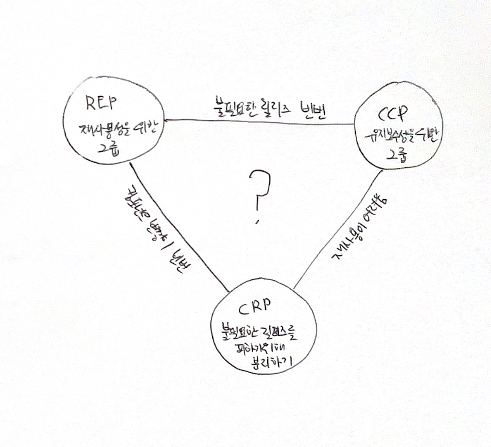 REP
재사용성을 위한
그룹
불필요한 릴리즈 빈번
CCP
유지보수성을 위한
그룹
?
컴포넌트 변경이 빈번
재사용이 어려움
CRP
불필요한 릴리즈를
피하기위해
분리하기